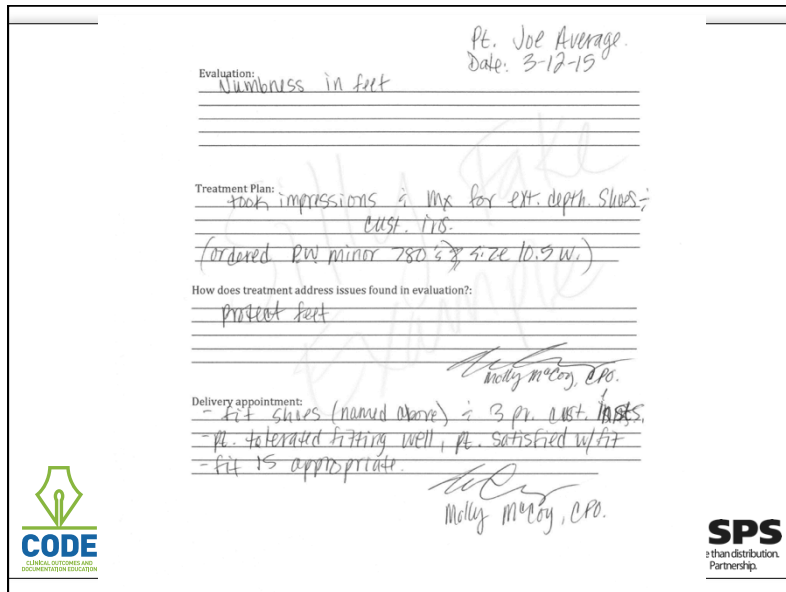 Pt. Joe Average.
Date: 3-12-15
Evaluation:
Numbness in feet
Treatment Plan:
took impressions & mx for ext. depth. shoes &
cust. ins.
(ordered P.W minor 780's size 10.5 W.)
How does treatment address issues found in evaluation?:
protect feet
Molly McCoy, CPO.
Delivery appointment:
- fit shoes (named above) & 3 pr. cust. insts.
- pt. tolerated fitting well, pt. satisfied w/fit
- fit is appropriate.
Molly McCoy, CPO.
Silly Fake
Example
CODE
CLINICAL OUTCOMES AND
DOCUMENTATION EDUCATION
SPS
e than distribution.
Partnership.